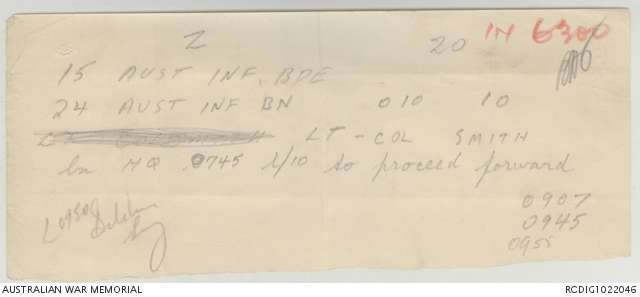 Z 20 IN 6300
15 AUST INF. BDE
24 AUST INF BN 010 10
LT - COL SMITH
bn HQ 0745 1/10 to proceed forward
0907
0945
0955
AUSTRALIAN WAR MEMORIAL RCDIG1022046